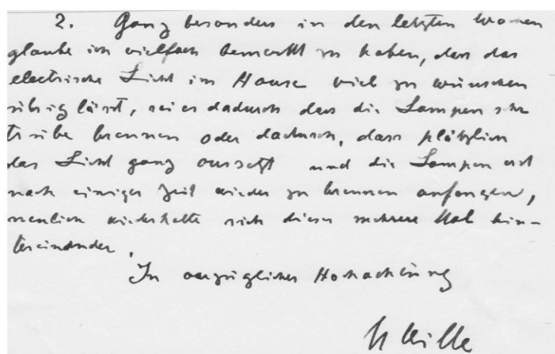 2. Ganz besonders in den letzten Wochen
glaube ich vielfach bemerkt zu haben, dass das
electrische Licht im Hause viel zu wünschen
übrig lässt, sei es dadurch dass die Lampen sehr
trübe brennen oder dadurch, dass plötzlich
das Licht ganz aussetzt und die Lampen erst
nach einiger Zeit wieder zu brennen anfangen,
neulich wiederholte sich dieses mehrere Mal hin-
tereinander.
In vorzüglicher Hochachtung